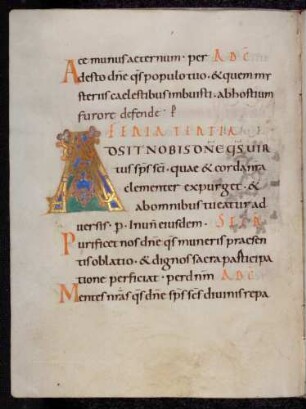 Ace munus aeternum · per A D C̄
Adesto dn̄e q̄s populo tuo · & quem mi
steriis caelestibus imbuisti · ab hostium
furore defende · P̱
FERIA TERTIA
ADSIT NOBIS DN̄E Q̄S VIR
tus sp̄s sc̄i · quae & corda n̄ra
clementer expurget · &
ab omnibus tueatur ad
versis · p · In un̄ eiusdem · SECR
Purificet nos dn̄e q̄s muneris praesen
tis oblatio · & dignos sacra participa
tione perficiat · per dn̄m A D C
Mentes nr̄as q̄s dn̄e sp̄s sc̄s divinis repa